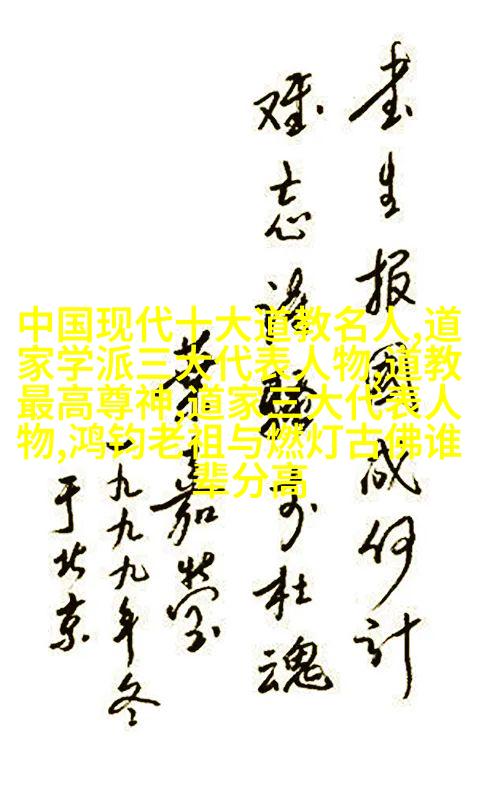 书生报國成何计
难忘诗骚李杜魂
葉嘉莹
一九九九年冬
于北京
中国现代十大道教名人,道
家学派三大代表人物,道教
最高尊神,道家三大代表人
物,鸿钧老祖与燃灯古佛谁
辈分高